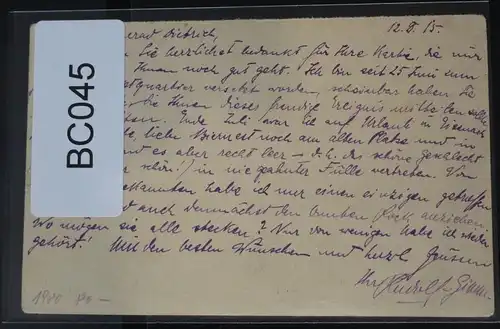 BC045
12.8.15.
Dietrich,
Sie herzlichst bedankt für Ihre Karte, die mir
Ihnen noch gut geht. Ich bin seit 25 Juni zum
versetzt worden, scheinbar haben Sie
Ihnen dieses freudige Ereignis mitteilen sollte
Ende Juli war ich auf Urlaub in Eisenach
liebe Biernest noch am alten Platze und in
es aber recht leer – d. h. das schöne Geschlecht
schön!) in nie geahnter Fülle vertreten. Von
Bekannten habe ich nur einen einzigen getroffen
auch demnächst den bunten Rock anziehen.
Wo mögen sie alle stecken? Nur von wenigen habe ich wieder
gehört! Mit den besten Wünschen und herzl. Grüssen
Ihr Rudolf